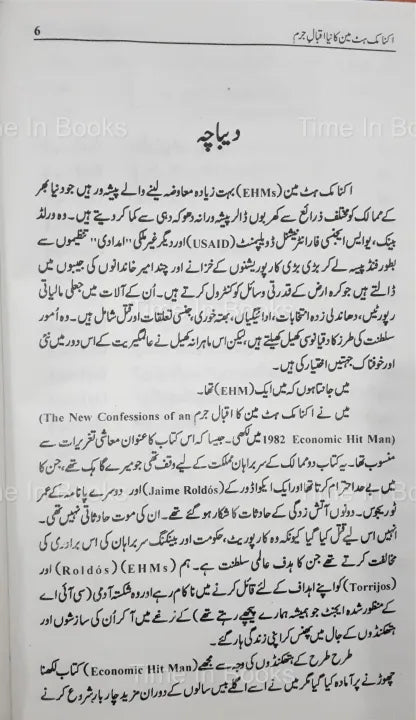 6
اکنامک ہٹ مین کا نیا اقبالِ جرم
Time In Books
Time In Books
دیباچہ
اکنامک ہٹ مین (EHMs) بہت زیادہ معاوضہ لینے والے پیشہ ور ہیں جو دنیا بھر
کے ممالک کو مختلف ذرائع سے کھربوں ڈالر پیشہ ورانہ دھوکہ دہی سے کما کر دیتے ہیں۔ وہ ورلڈ
بینک، یو ایس ایجنسی فار انٹرنیشنل ڈویلپمنٹ (USAID) اور دیگر غیر ملکی "امدادی" تنظیموں سے
بطور فنڈ پیسہ لے کر بڑی بڑی کارپوریشنوں کے خزانے اور چند امیر خاندانوں کی جیبوں میں
ڈالتے ہیں جو کرہ ارض کے قدرتی وسائل کو کنٹرول کرتے ہیں۔ اُن کے آلات میں جعلی مالیاتی
رپورٹیں، دھاندلی زدہ انتخابات، ادائیگیاں، بھتہ خوری، جنسی تعلقات اور قتل شامل ہیں۔ وہ اُمور
سلطنت کی طرز کا دقیانوسی کھیل کھیلتے ہیں لیکن اس ماہرانہ کھیل نے عالمگیریت کے اس دور میں نئی
اور خوفناک جہتیں اختیار کی ہیں۔
میں جانتا ہوں کہ میں ایک (EHM) تھا۔
میں نے اکنامک ہٹ مین کا اقبال جرم (The New Confessions of an
Economic Hit Man) 1982 میں لکھی۔ جیسا کہ اس کتاب کا عنوان معاشی تغیرات سے
منسوب تھا۔ یہ کتاب دو ممالک کے سربراہان مملکت کے لیے وقف تھی جو میرے گاہک تھے، جن کا
میں بے حد احترام کرتا تھا اور ایک ایکواڈور کے (Jaime Roldós) اور دوسرے پانامہ کے عمر
توریجوس۔ دونوں آتش زدگی کے حادثات کا شکار ہو گئے تھے۔ ان کی موت حادثاتی نہیں تھی۔
انہیں اس لیے قتل کیا گیا کیونکہ وہ کارپوریٹ، حکومت اور بینکنگ سربراہان کی اس برادری کی
مخالفت کرتے تھے جن کا ہدف عالمی سلطنت ہے۔ ہم (EHMs) (Roldós) اور
(Torrijos) کو اپنے اہداف کے لئے قائل کرنے میں ناکام رہے اور وہ شکتہ آدمی (سی آئی اے
کے منظور شدہ ایجنٹ جو ہمیشہ ہمارے پیچھے رہتے تھے) کے نرغے میں آ کر اُن کی سازشوں اور
ہتھکنڈوں کے جال میں پھنس کر اپنی زندگی ہار گئے۔
طرح طرح کے ہتھکنڈوں کی وجہ سے مجھے (Economic Hit Man) کتاب لکھنا
چھوڑنے پر آمادہ کیا گیا مگر میں نے اسے اگلے بیس سالوں کے دوران مزید چار بار شروع کرنے
Time In Books
Time In Books